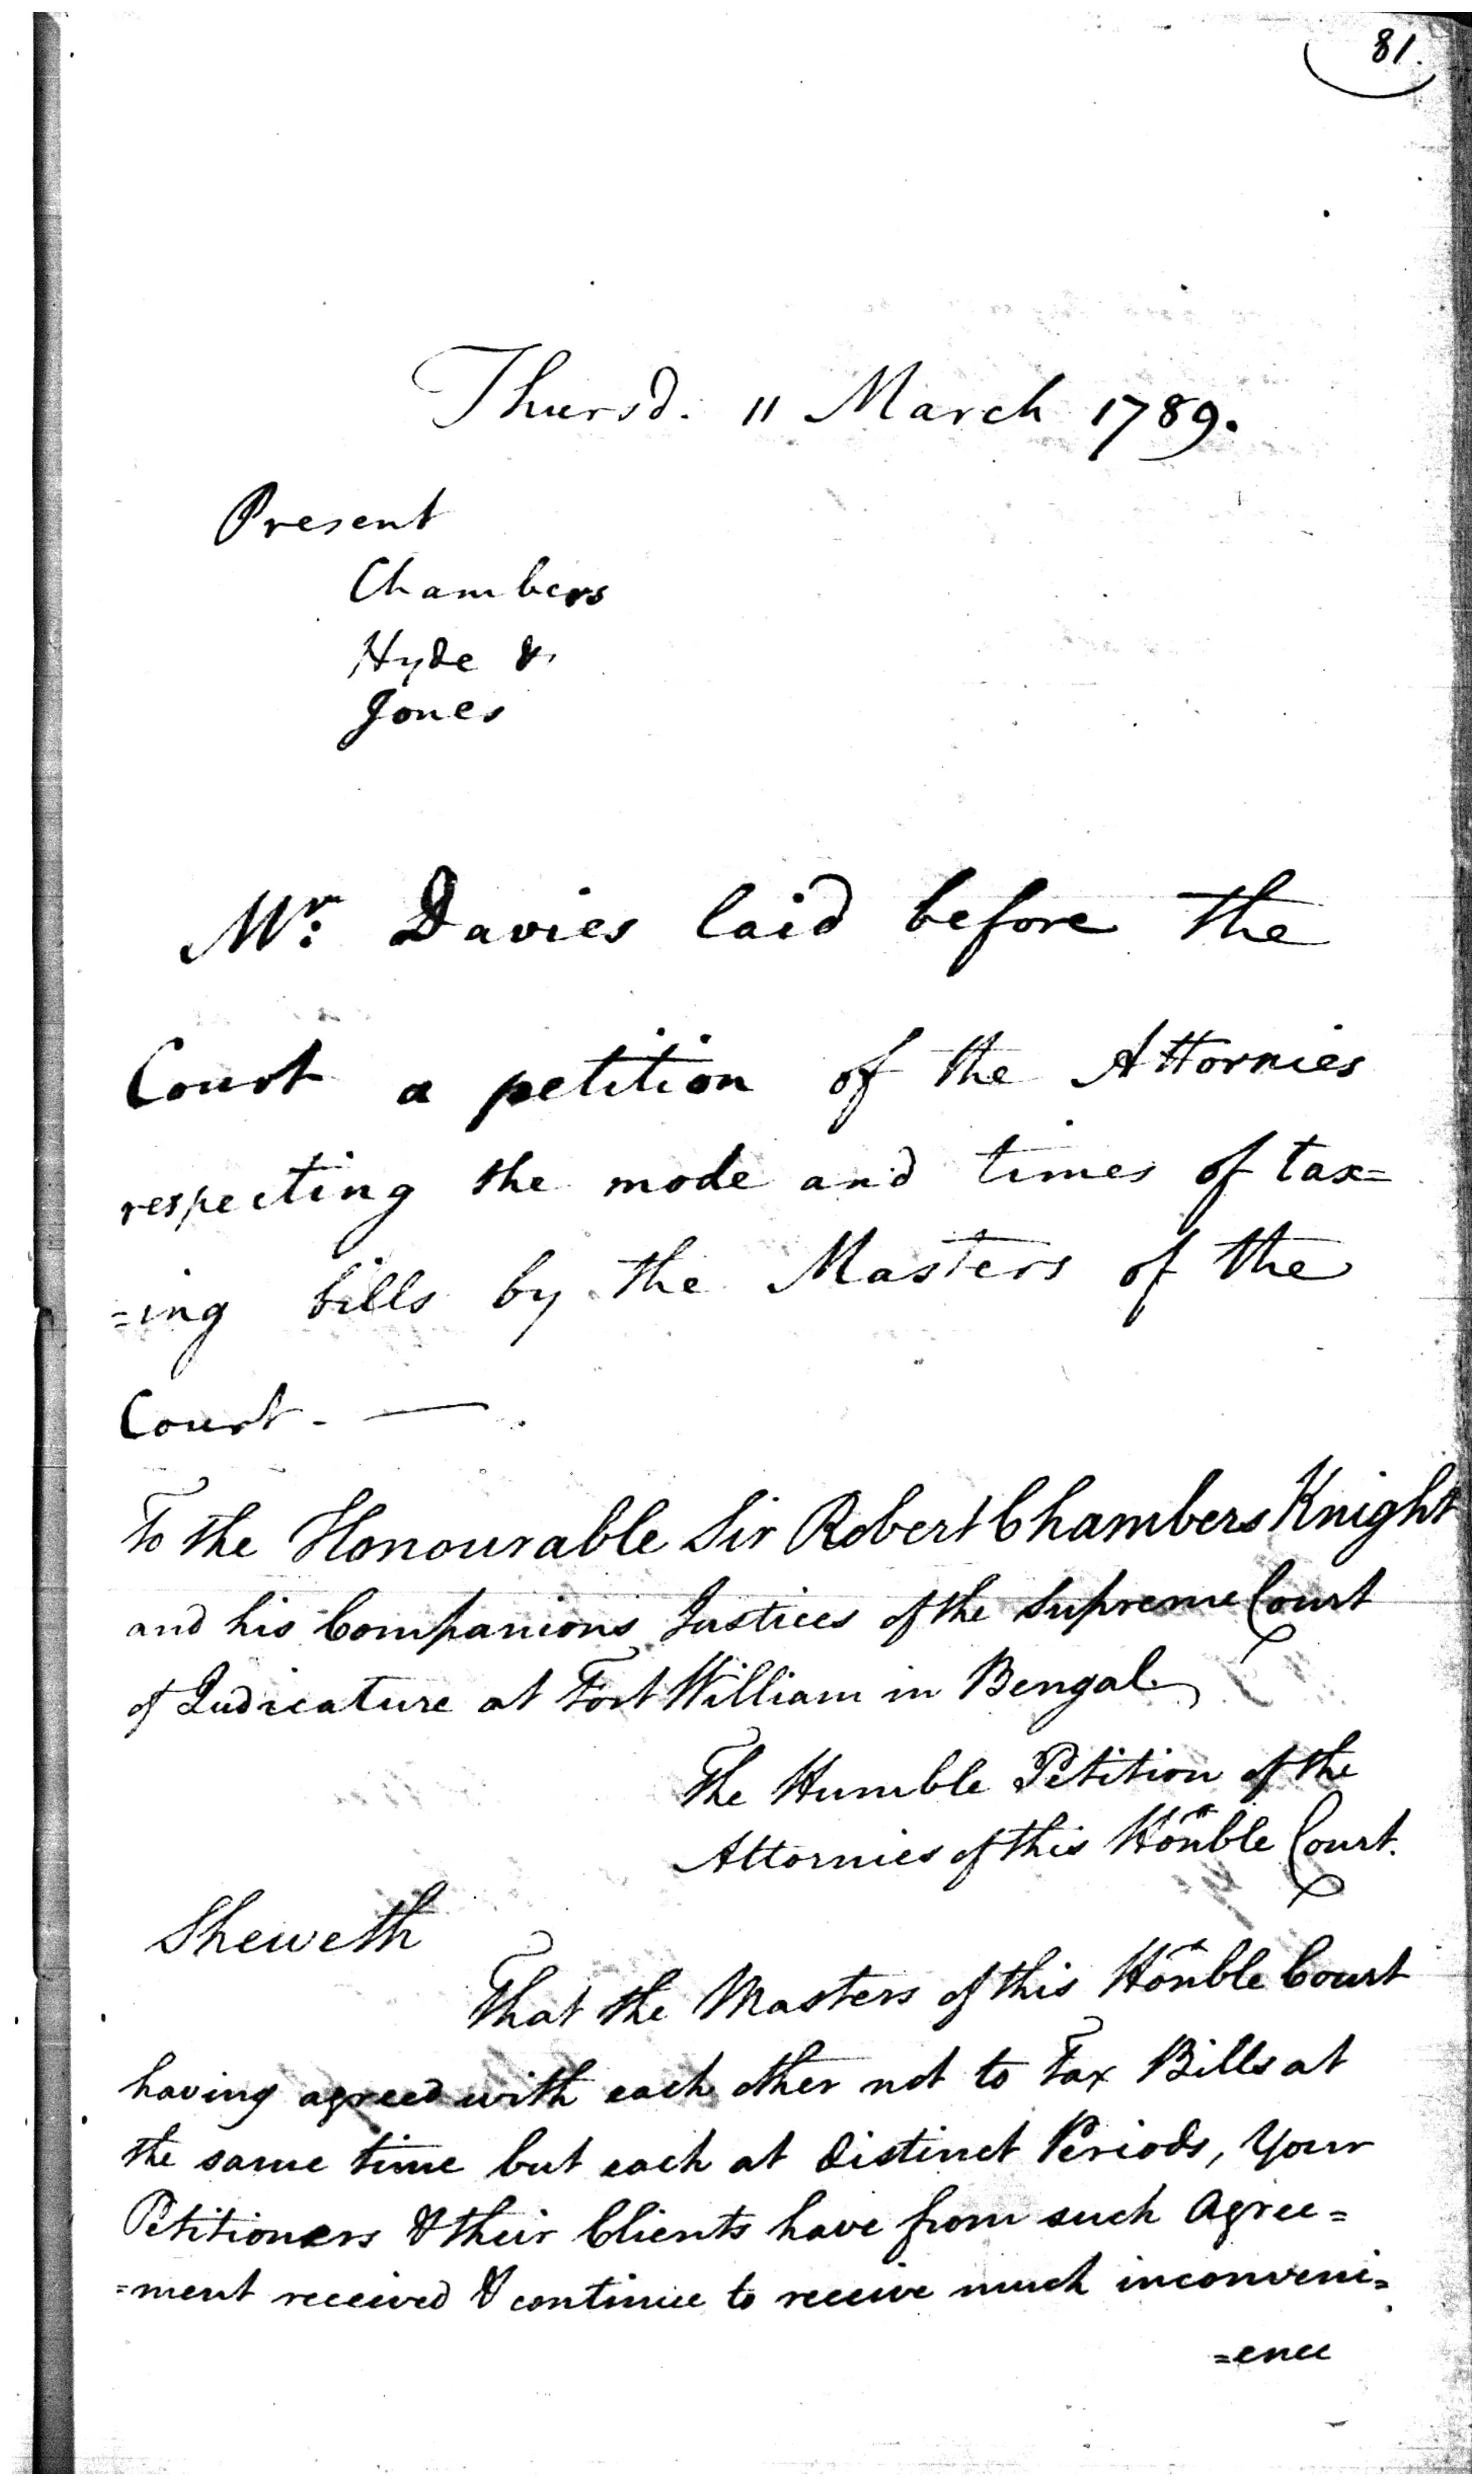 81.
Thursd. 11 March 1789.
Present
Chambers
Hyde &
Jones
Mr: Davies laid before the
Court a petition of the Attornies
respecting the mode and times of tax=
=ing bills by the Masters of the
Court. —
To the Honourable Sir Robert Chambers Knight
and his Companions Justices of the Supreme Court
of Judicature at Fort William in Bengal
The Humble Petition of the
Attornies of this Honble Court.
Sheweth
That the Masters of this Honble Court
having agreed with each other not to Tax Bills at
the same time but each at distinct Periods, Your
Petitioners & their Clients have from such Agree=
=ment received & continue to receive much inconveni=
=ence